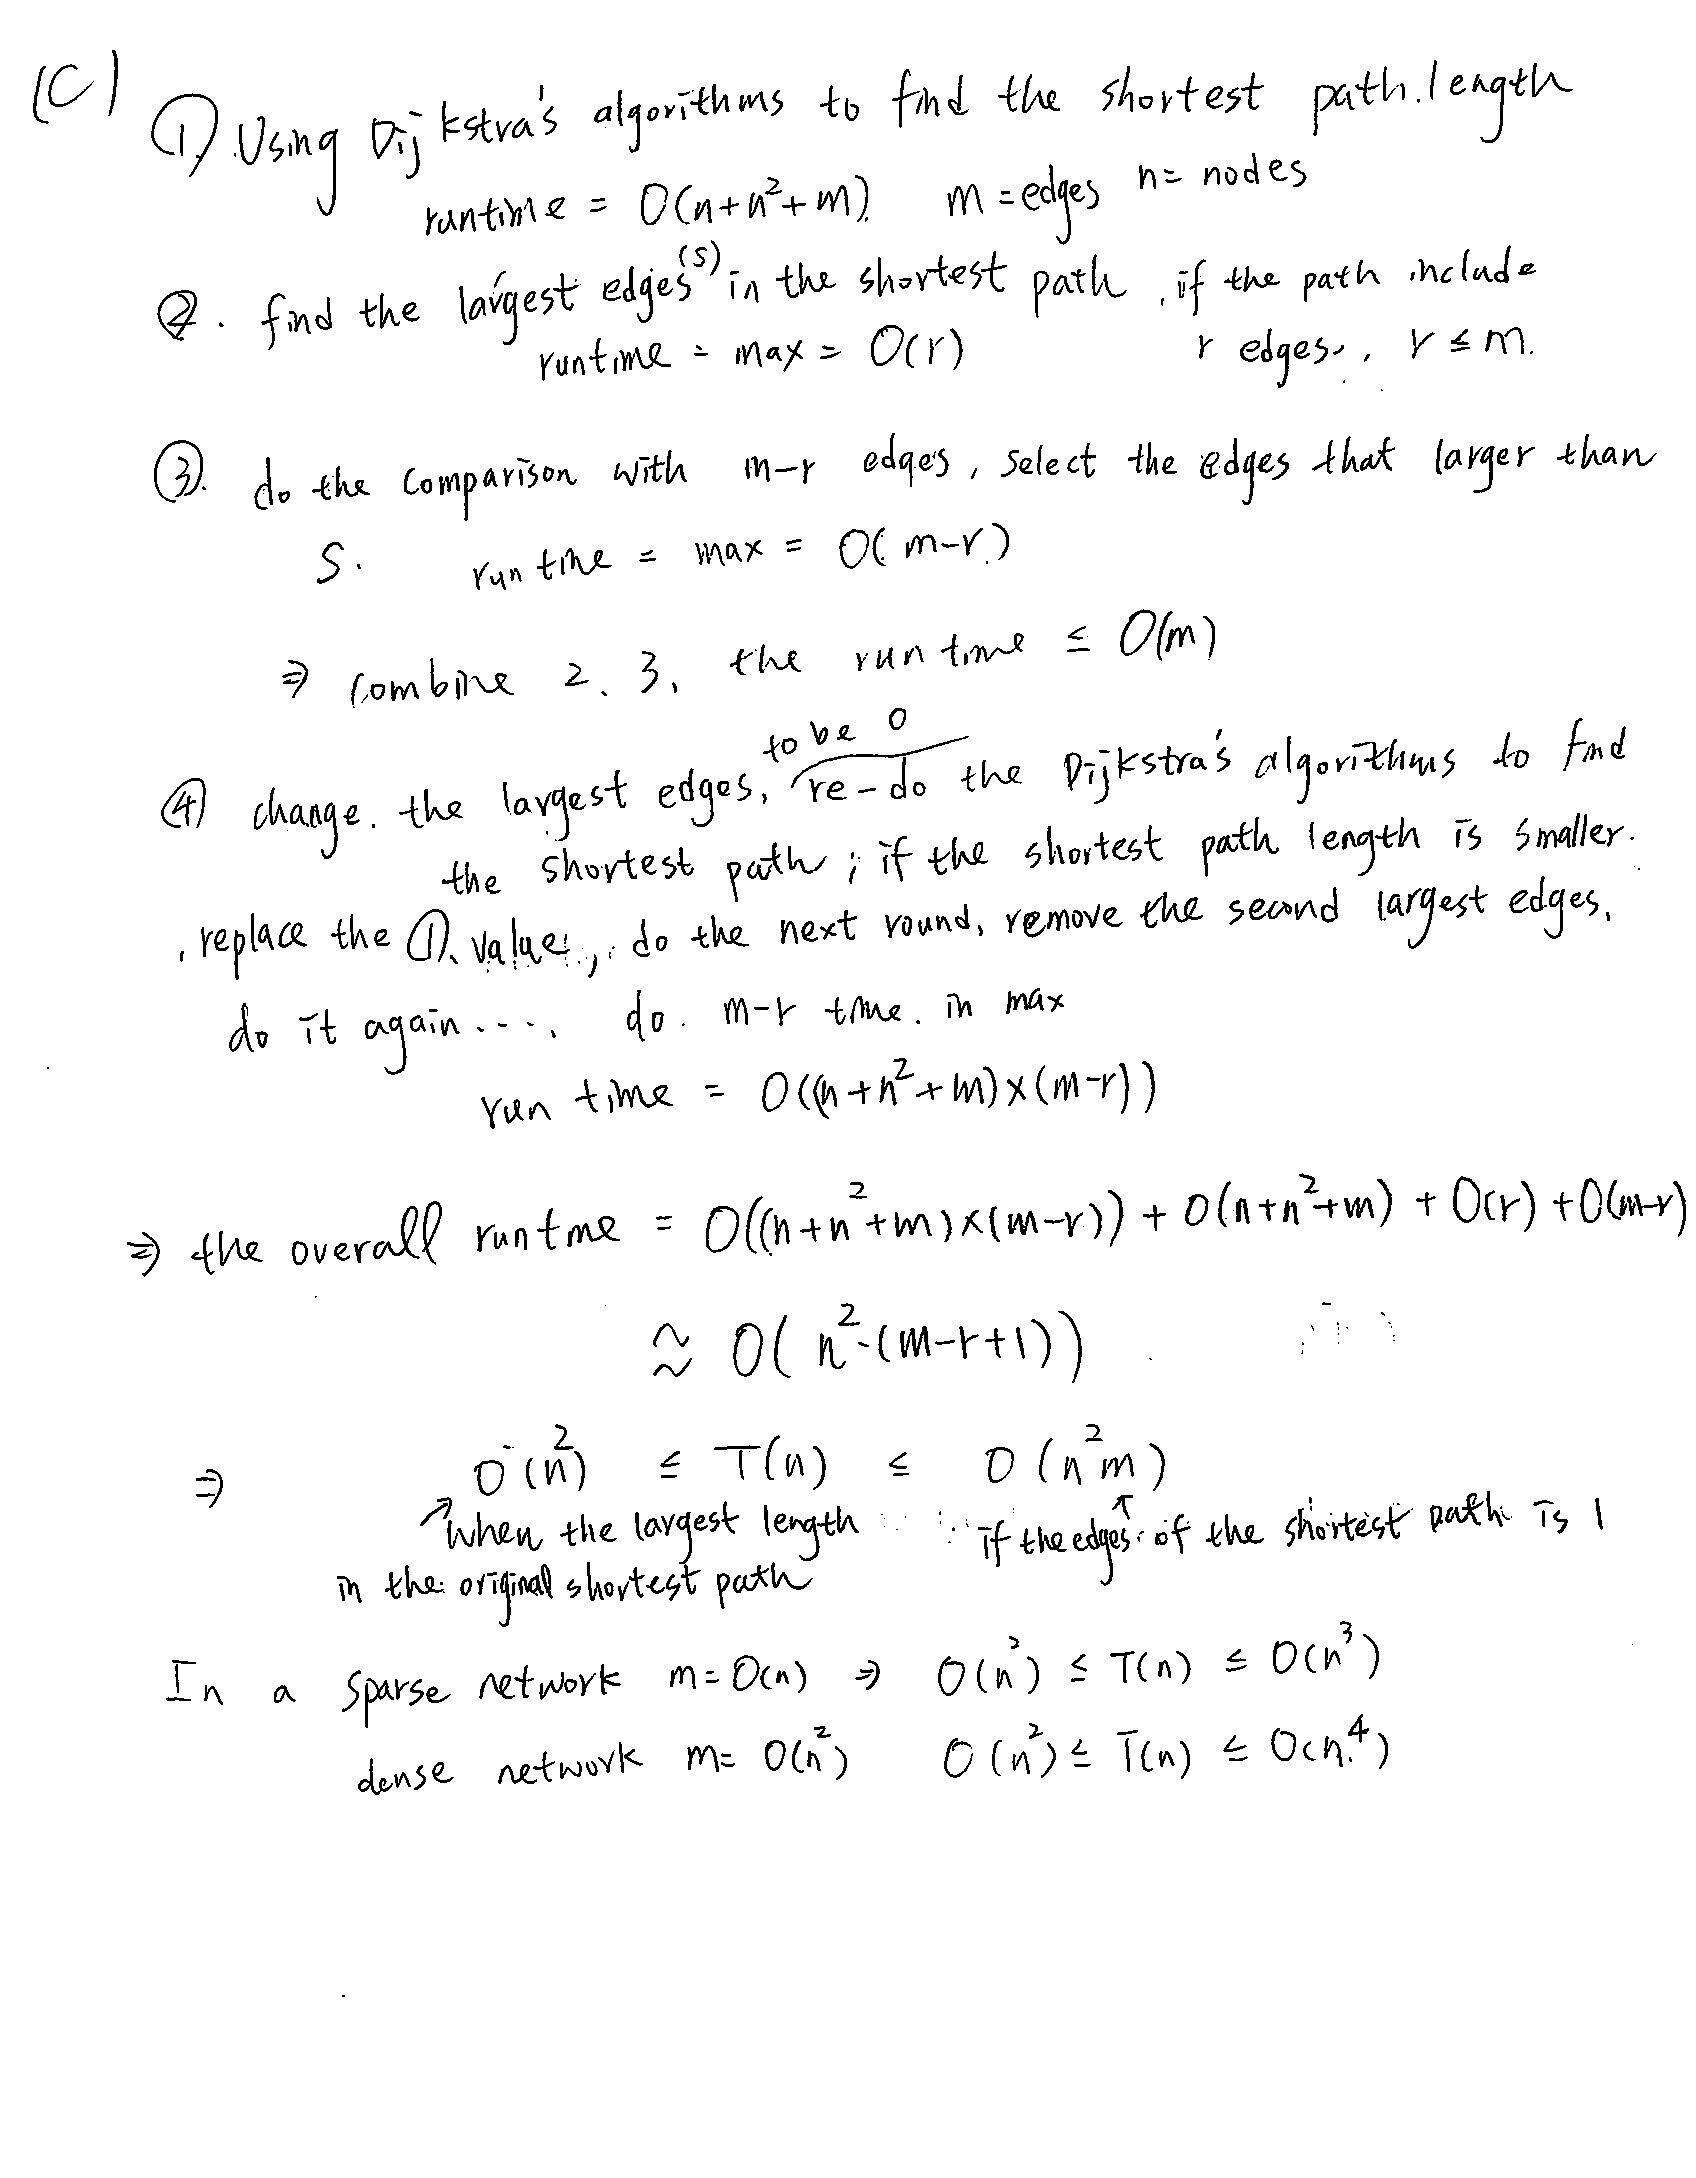 (C)
① Using Dijkstra's algorithms to find the shortest path length
runtime = O(n+n²+m). m = edges n = nodes
②. find the largest edges(S) in the shortest path, if the path include
runtime = max = O(r) r edges, r ≤ m.
③. do the comparison with m-r edges, select the edges that larger than
S. run time = max = O(m-r)
⇒ combine 2、3, the run time ≤ O(m)
to be 0
④ change the largest edges, re-do the Dijkstra's algorithms to find
the shortest path; if the shortest path length is smaller.
, replace the ①. value, do the next round, remove the second largest edges,
do it again...., do m-r time in max
run time = O((n+n²+m)×(m-r))
⇒ the overall runtime = O((n+n²+m)×(m-r)) + O(n+n²+m) + O(r) + O(m-r)
≈ O(n²·(m-r+1))
⇒ O(n²) ≤ T(n) ≤ O(n²m)
↗ when the largest length ↑ if the edges of the shortest path is 1
in the original shortest path
In a sparse network m = O(n) ⇒ O(n²) ≤ T(n) ≤ O(n³)
dense network m = O(n²) O(n²) ≤ T(n) ≤ O(n⁴)